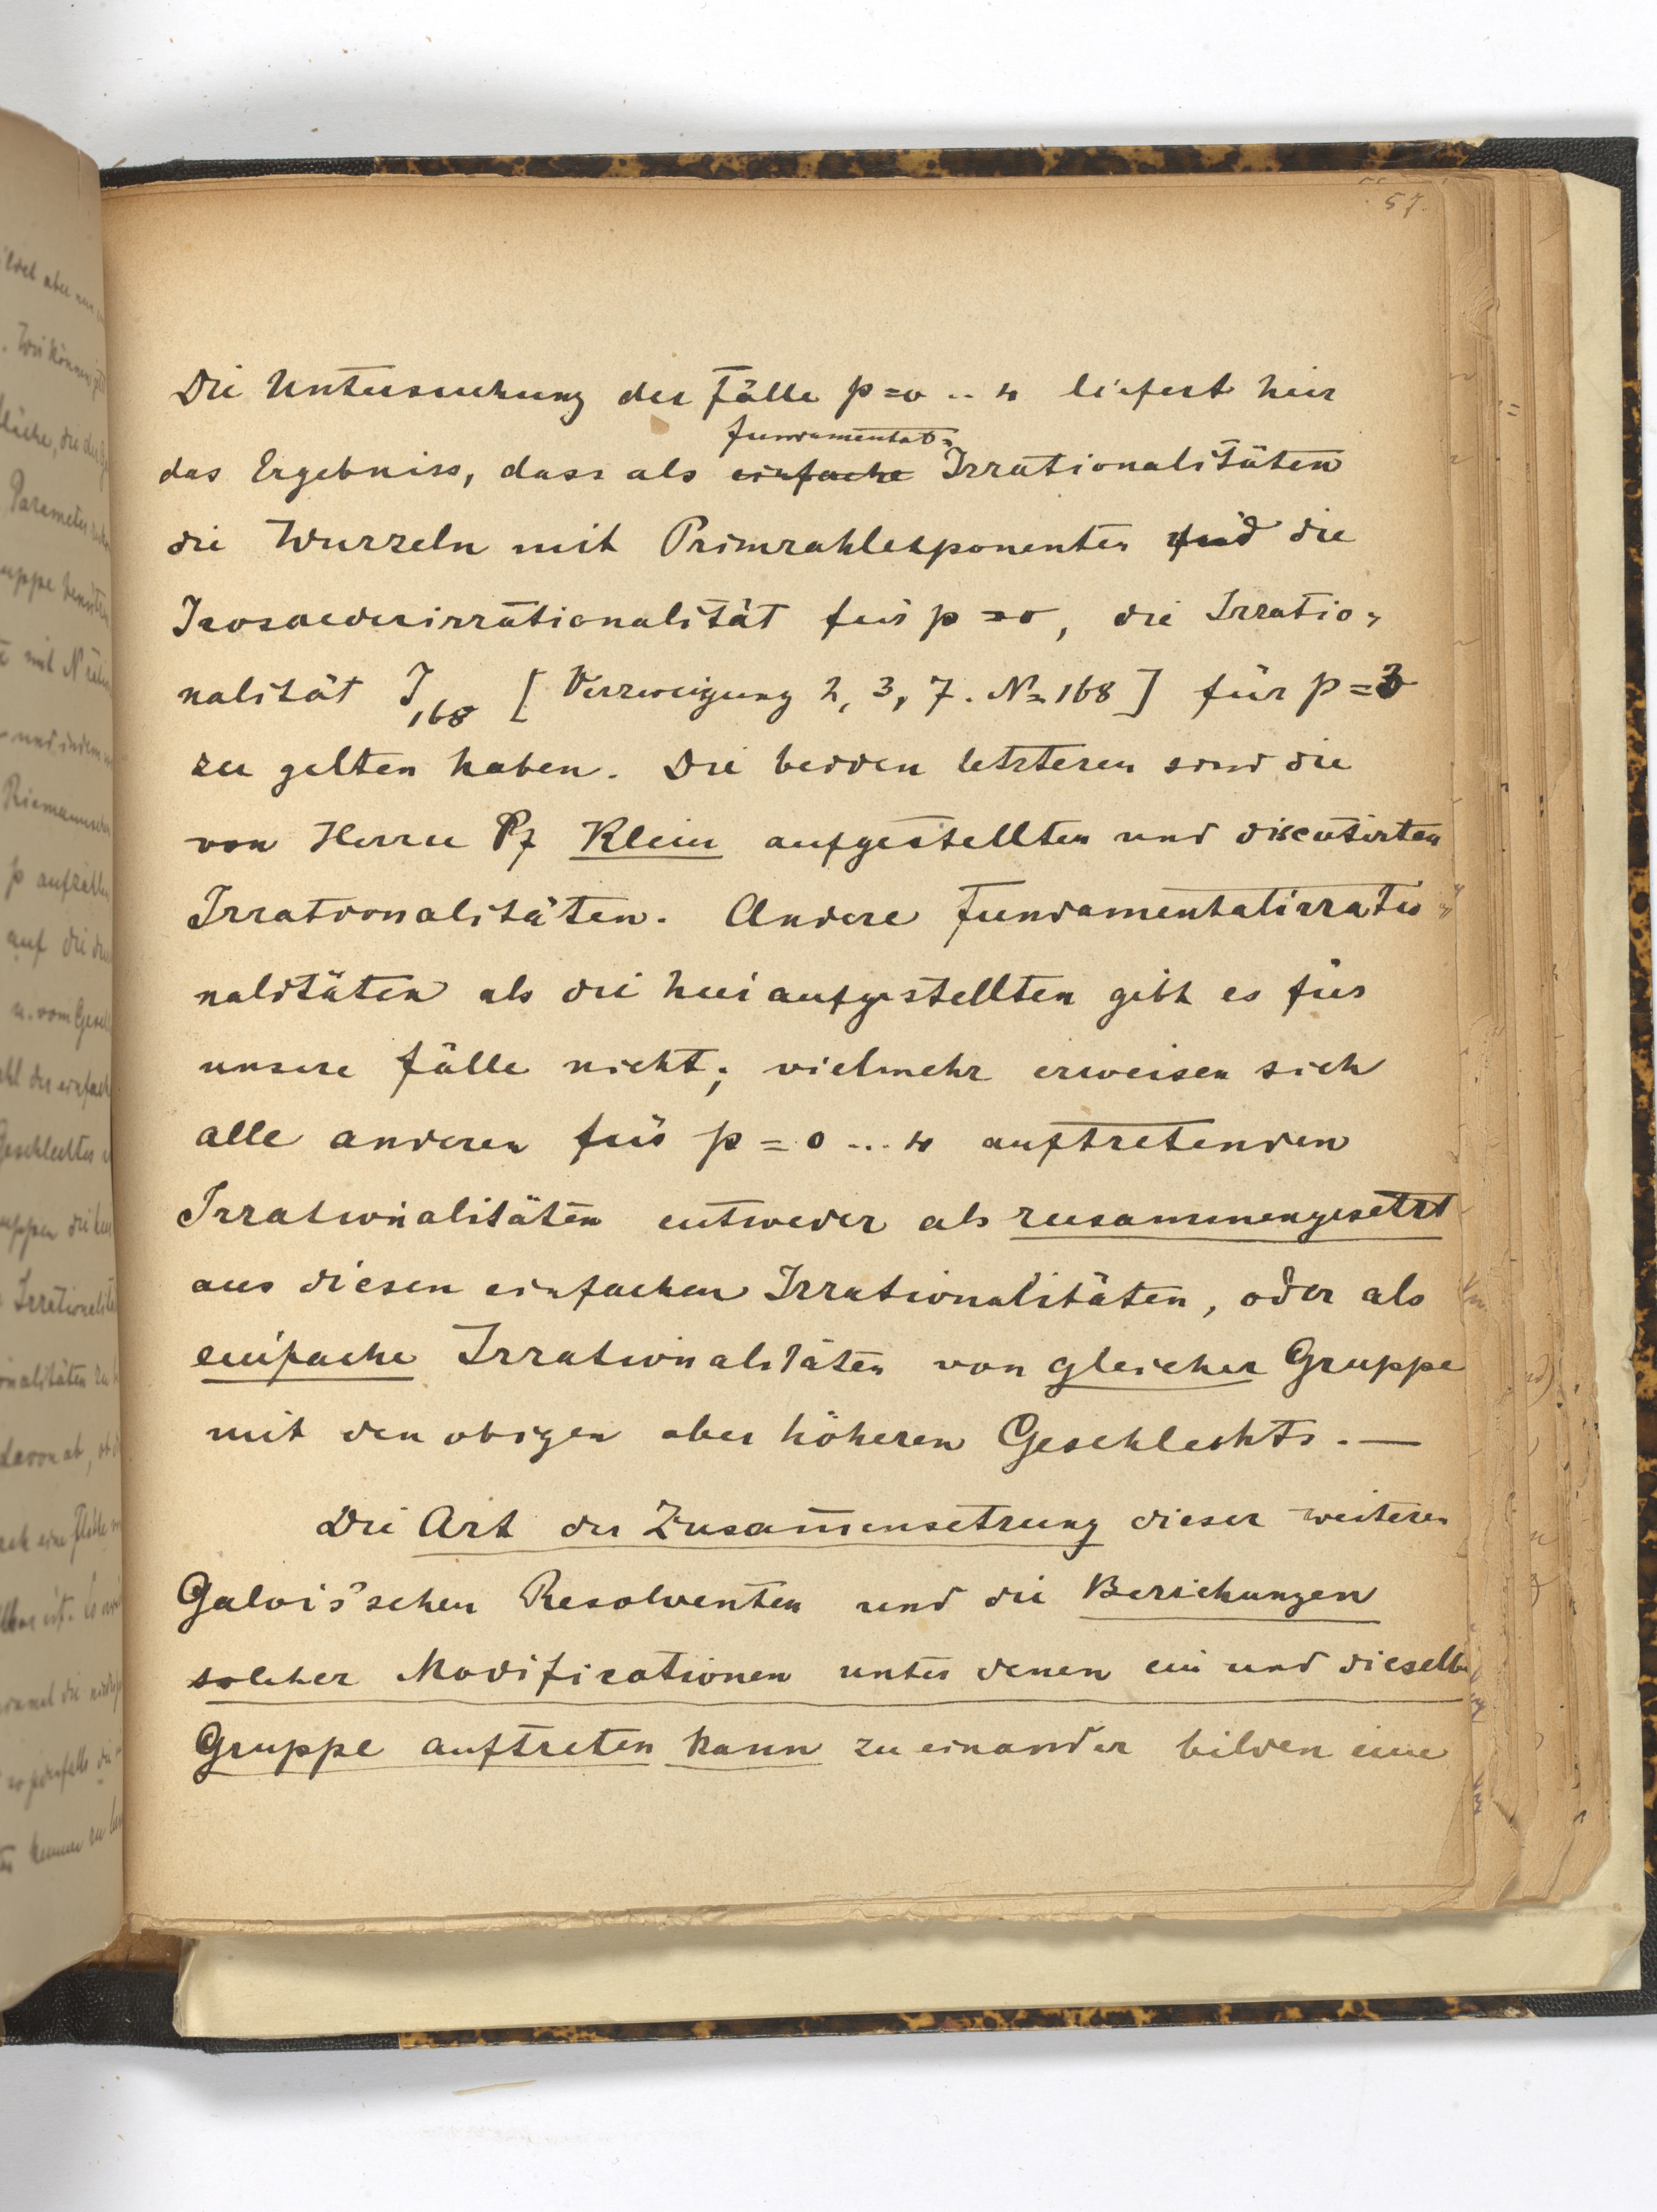 57.
Die Untersuchung der Fälle p=0 .. 4 liefert hier
fundamental-
das Ergebniss, dass als einfache Irrationalitäten
die Wurzeln mit Primzahlexponenten und die
Icosaederirrationalität für p=0, die Irratio-
nalität J168 [Verzweigung 2, 3, 7. N=168] für p=3
zu gelten haben. Die beiden letzteren sind die
von Herrn Pf Klein aufgestellten und discutirten
Irrationalitäten. Andere Fundamentalirratio-
nalitäten als die hier aufgestellten gibt es für
unsere Fälle nicht; vielmehr erweisen sich
alle anderen für p=0 ... 4 auftretenden
Irrationalitäten entweder als zusammengesetzt
aus diesen einfachen Irrationalitäten, oder als
einfache Irrationalitäten von gleicher Gruppe
mit den obigen aber höheren Geschlechts. —
Die Art der Zusam̅ensetzung dieser weiteren
Galois'schen Resolventen und die Beziehungen
solcher Modificationen unter denen ein und dieselbe
Gruppe auftreten kann zu einander bilden eine